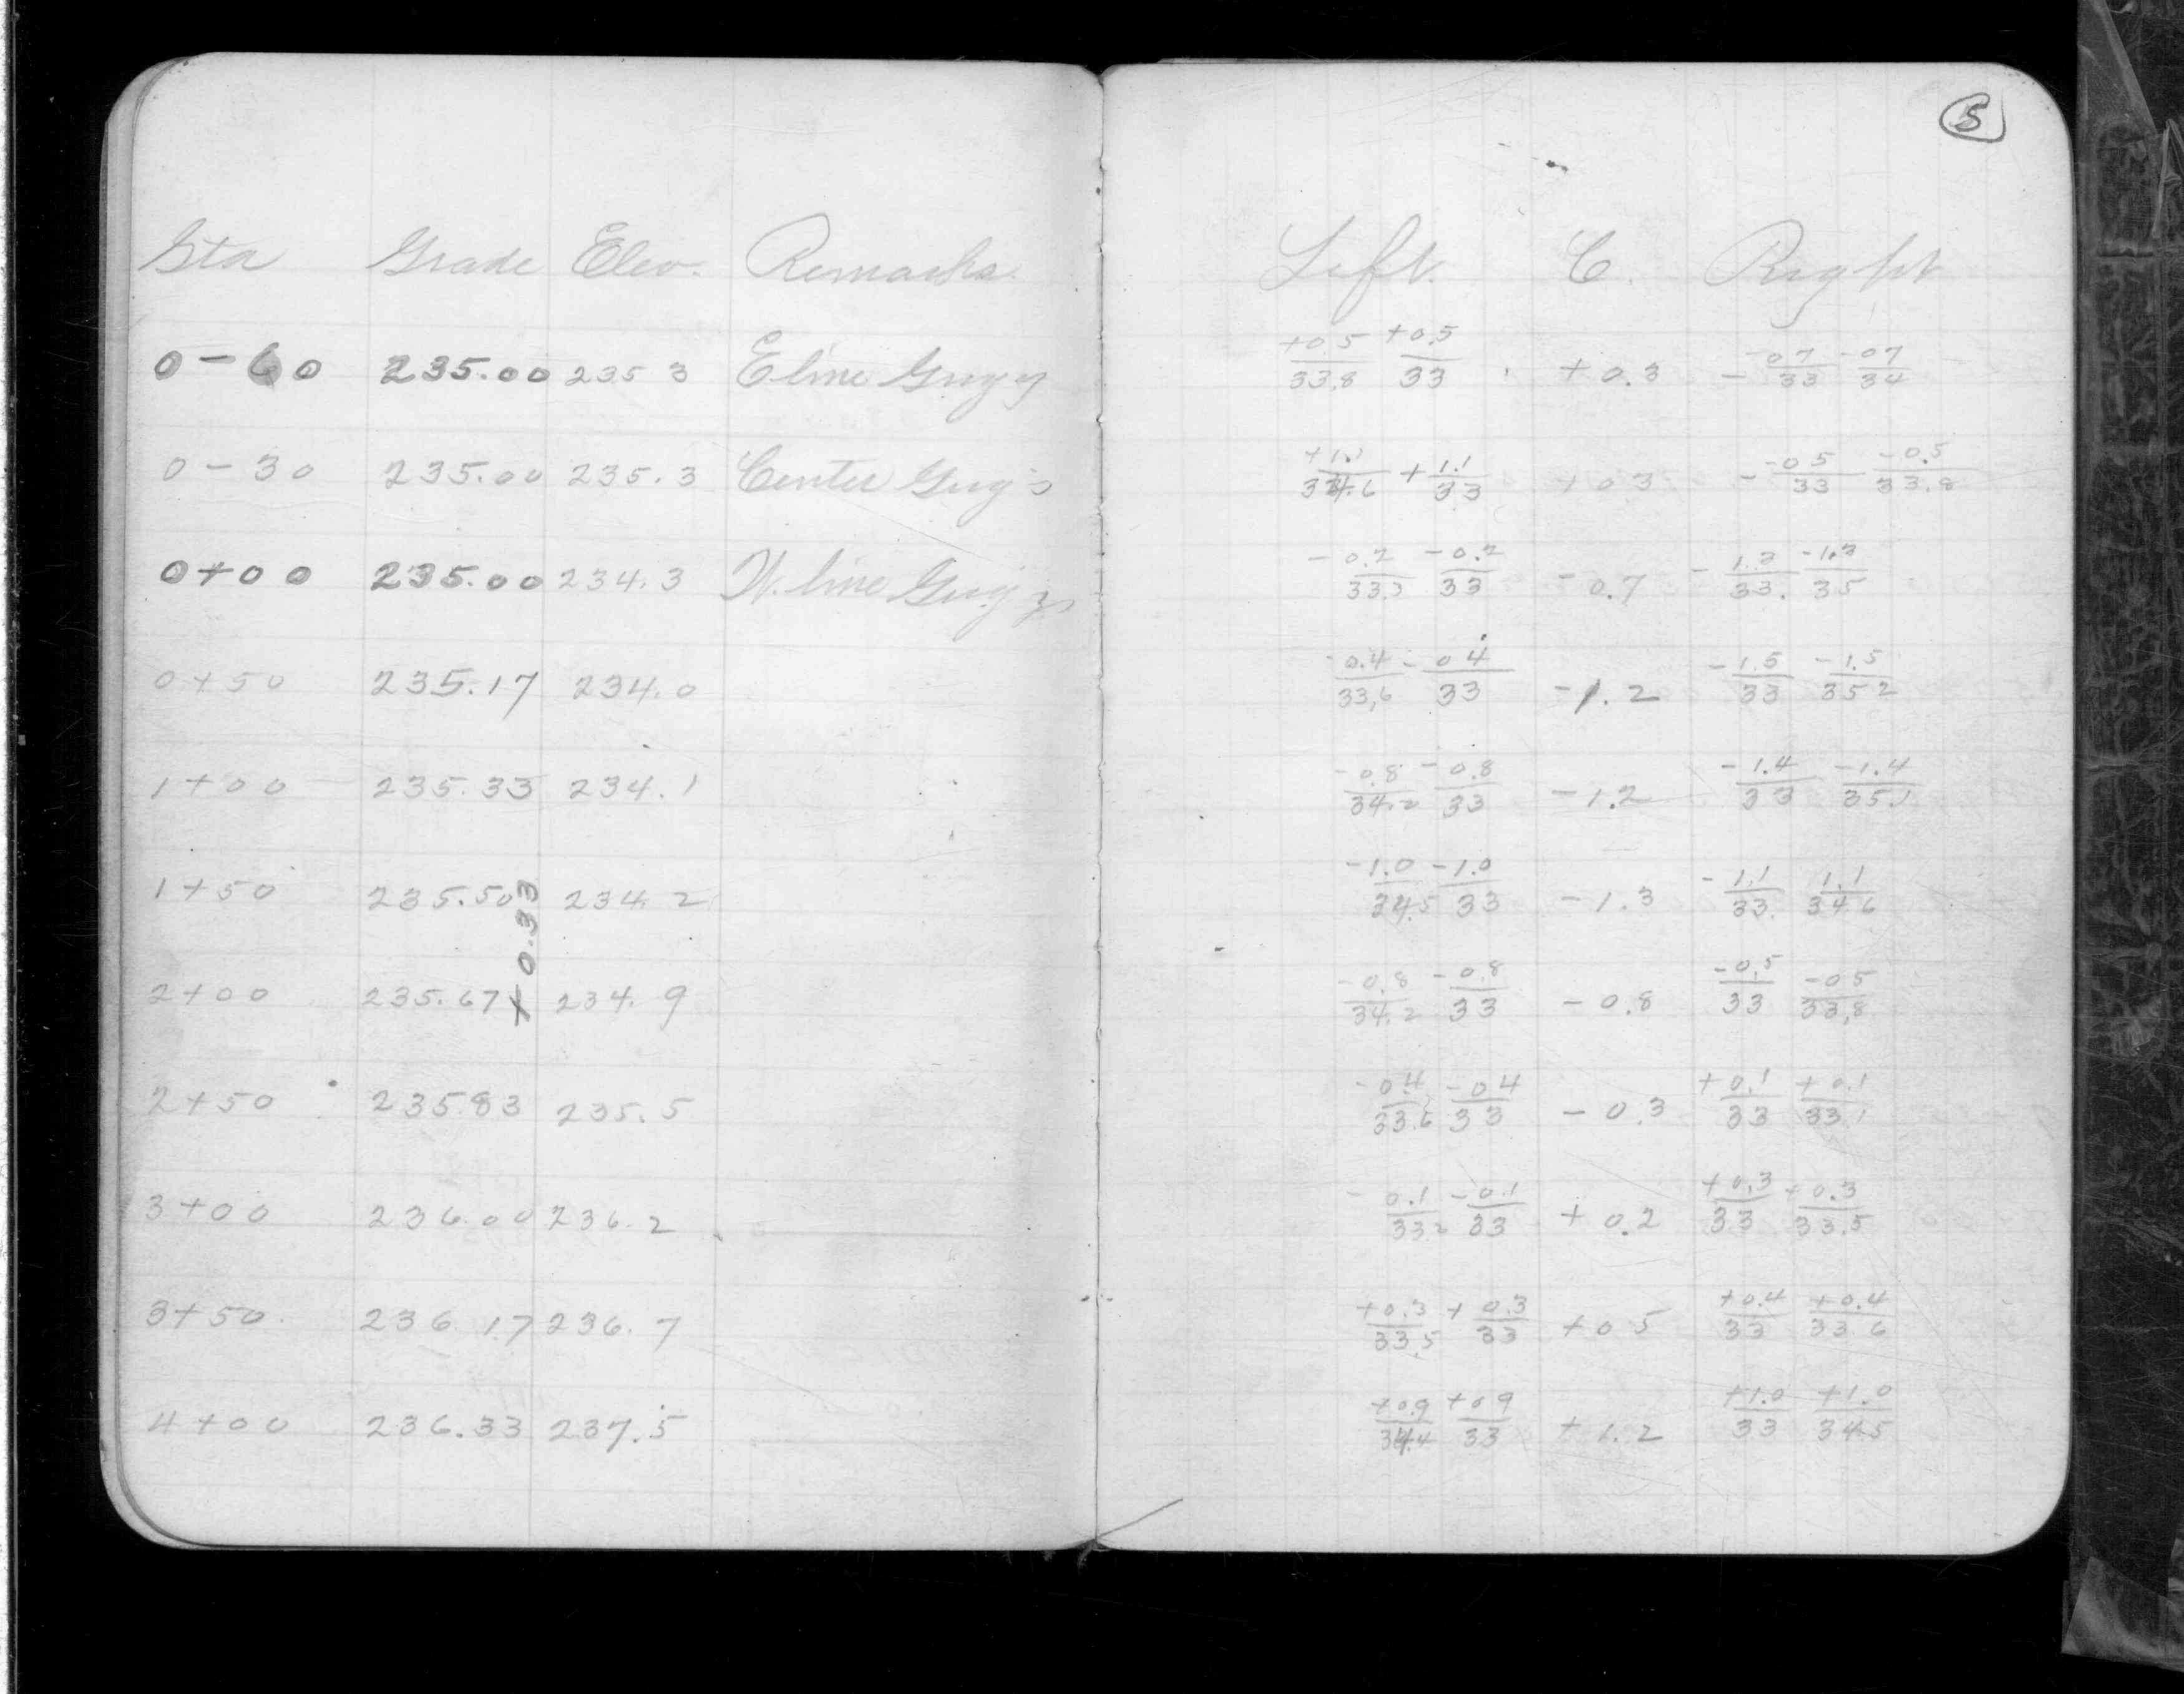 5
Sta Grade Elev. Remarks Left. C. Right
0-60 235.00 235 3 E line +0.5/33.8 +0.5/33 +0.3 -0 7/33 -0 7/34
0-30 235.00 235.3 Center /33 +0 3 -0 5/33 -0.5/33.8
0+00 235.00 234.3 W. line -0.2/33.3 -0.2/33 -0.7 /33. /35
0+50 235.17 234.0 -0.4/33.6 -0 4/33 -1.2 -1.5/33 -1.5/35 2
1+00 235.33 234.1 -0.8/34.2 -0.8/33 -1.2 -1.4/33 -1.4/35.1
1+50 235.50 234.2 -1.0/34.5 -1.0/33 -1.3 -1.1/33. 1.1/34 6
+0.33
2+00 235.67 234.9 -0.8/34.2 -0.8/33 -0.8 -0.5/33 -0 5/33.8
2+50 235 83 235.5 -0 4/33.6 -0 4/33 -0.3 +0.1/33 +0.1/33 1
3+00 236.00 236.2 -0.1/33 2 -0.1/33 +0.2 +0.3/33 +0.3/33.5
3+50. 236 17 236.7 +0.3/33.5 +0.3/33 +0 5 +0.4/33 +0.4/33 6
4+00 236.33 237.5 +0.9/34.4 +0 9/33 +1.2 +1.0/33 +1.0/34.5